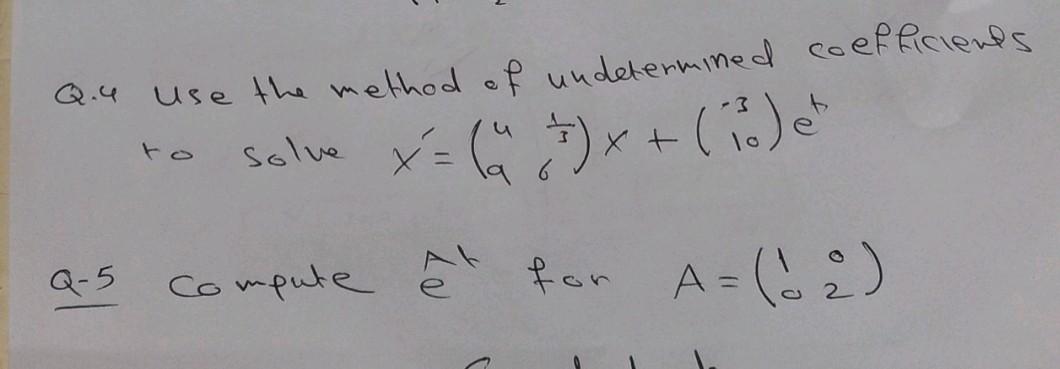 Q.4 Use the method of undetermined coefficients
to solve x′ = (4 1/3; 9 6) x + (-3; 10) e^t
Q-5 Compute e^At for A = (1 0; 0 2)